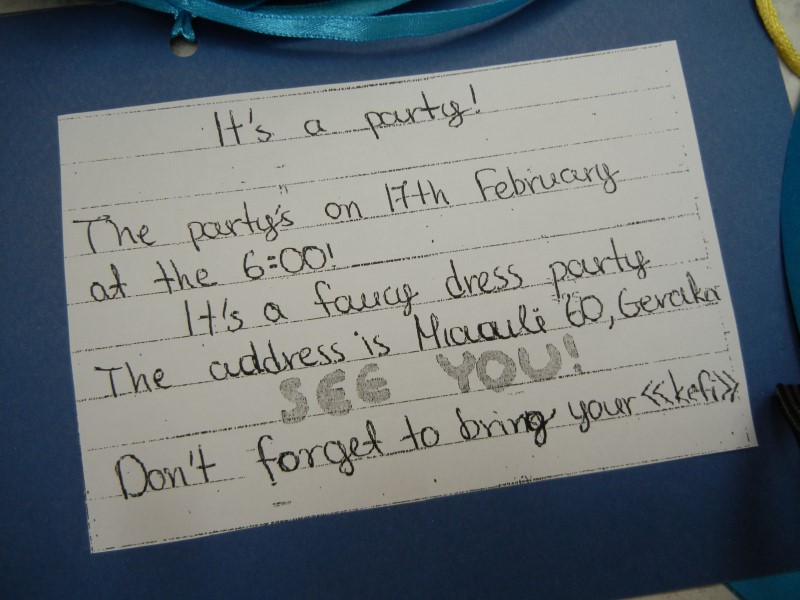 It's a party!
The party's on 17th February
at the 6:00!
It's a fancy dress party
The address is Miaouli 60, Geraka
SEE YOU!
Don't forget to bring your «kefi»